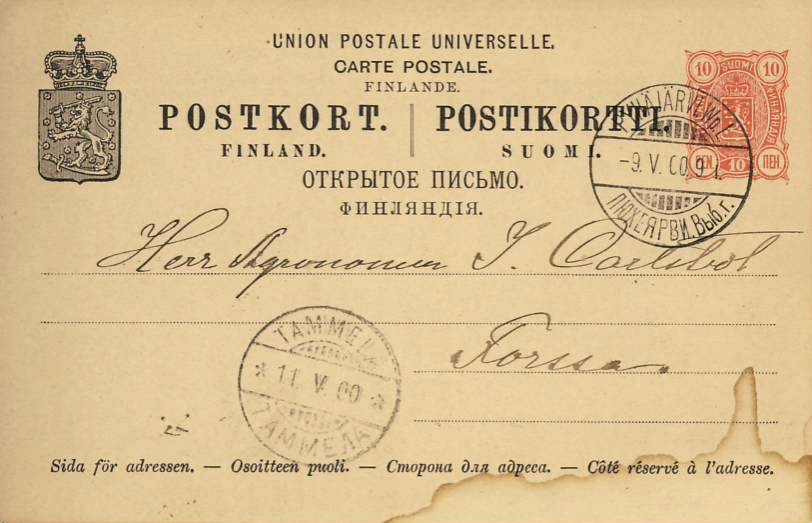 UNION POSTALE UNIVERSELLE.
CARTE POSTALE.
FINLANDE.
POSTKORT. | POSTIKORTTI.
FINLAND. SUOMI.
ОТКРЫТОЕ ПИСЬМО.
ФИНЛЯНДІЯ.
10 SUOMI 10
FINLAND
PEN 10 ПЕН
-9. V. 00 9 I.
ПЮХЕЯРВИ. Выб. г.
Herr Agronomen J. Carlsbol
Forssa.
TAMMELA
* 11. V. 00 *
ТАММЕЛА
Sida för adressen. — Osoitteen puoli. — Сторона для адреса. — Côté réservé à l'adresse.